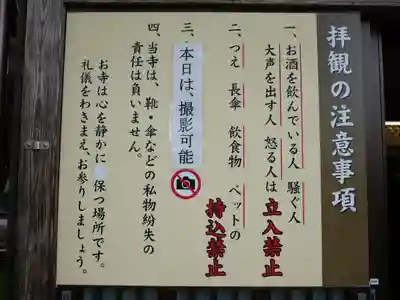 拝観の注意事項
一、お酒を飲んでいる人 騒ぐ人
大声を出す人 怒る人は立入禁止
二、つえ 長傘 飲食物 ペットの
持込禁止
三、本日は、撮影可能
四、当寺は、靴・傘などの私物紛失の
責任は負いません。
お寺は心を静かに 保つ場所です。
礼儀をわきまえ、お参りしましょう。